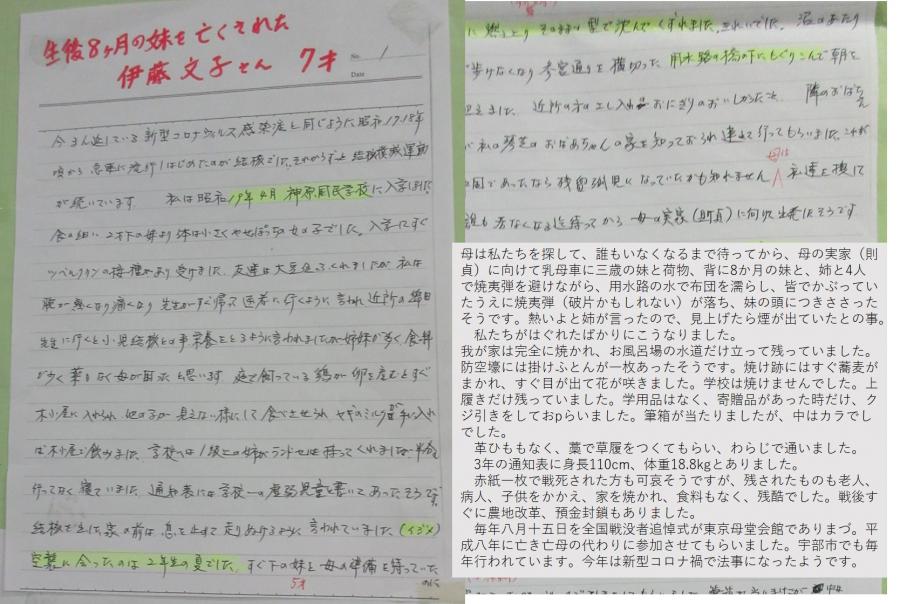 生後8ヶ月の妹を亡くされた
伊藤文子さん 7才
No. 1
Date
今まん延している新型コロナウィルス感染症と同じように昭和17.18年
頃から急速に流行しはじめたのが結核でした。それからずっと結核撲滅運動
が続いています 私は昭和19年4月神原国民学校に入学しました
入学してすぐ
ツベルクリンの接種があり受けました 友達は大豆位ふくれましたが私は
腕が熱くなり痛くなり先生がすぐ帰って医者に行くように言われ近所の
先生に行くと小児結核との事栄養をとるように言われましたが姉妹が多く食料
が少く薬もなく母が困ったと思います 庭で飼っている鶏が卵を産むとすぐ
小屋に入れられ 他の子が見えない様にして食べさせられ ヤギのミルクが手に入れ
ば小屋で飲みました 学校へは1級上の姉がランドセルは持ってくれました 半分
行ってなく寝ていました 通知表には学校一の虚弱児童と書いてあったそうです
結核で亡くなった家の前は息を止めて走りぬけるように言われていました(イジメ)
空襲に会ったのは2年生の夏でした すぐ下の妹と母の準備を待っていた
5才
のに
に燃え上りそのままの型で沈んでくずれました。きれいでした。沼のあたり
で歩けなくなり参宮通りを横切った 用水路の橋の下にもぐりこんで朝を
迎えました 近所の方のさし入れおにぎりのおいしかったこと 隣のおばちゃん
が私の琴芝のおばあちゃんの家を知っておられ連れて行ってもらいました これが
国であったなら残留孤児になっていたかも知れません 母は 私達を探して
誰も居なくなる迄待ってから 母の実家(則貞)に向け出発したそうです
母は私たちを探して、誰もいなくなるまで待ってから、母の実家(則
貞)に向けて乳母車に三歳の妹と荷物、背に8か月の妹と、姉と4人
で焼夷弾を避けながら、用水路の水で布団を濡らし、皆でかぶってい
たうえに焼夷弾(破片かもしれない)が落ち、妹の頭につきささった
そうです。熱いよと姉が言ったので、見上げたら煙が出ていたとの事。
私たちがはぐれたばかりにこうなりました。
我が家は完全に焼かれ、お風呂場の水道だけ立って残っていました。
防空壕には掛けふとんが一枚あったそうです。焼け跡にはすぐ蕎麦が
まかれ、すぐ目が出て花が咲きました。学校は焼けませんでした。上
履きだけ残っていました。学用品はなく、寄贈品があった時だけ、ク
ジ引きをしておpらいました。筆箱が当たりましたが、中はカラでし
でした。
革ひももなく、藁で草履をつくてもらい、わらじで通いました。
3年の通知表に身長110cm、体重18.8kgとありました。
赤紙一枚で戦死された方も可哀そうですが、残されたものも老人、
病人、子供をかかえ、家を焼かれ、食料もなく、残酷でした。戦後す
ぐに農地改革、預金封鎖もありました。
毎年八月十五日を全国戦没者追悼式が東京母堂会館でありまづ。平
成八年に亡き亡母の代わりに参加させてもらいました。宇部市でも毎
年行われています。今年は新型コロナ禍で法事になったようです。